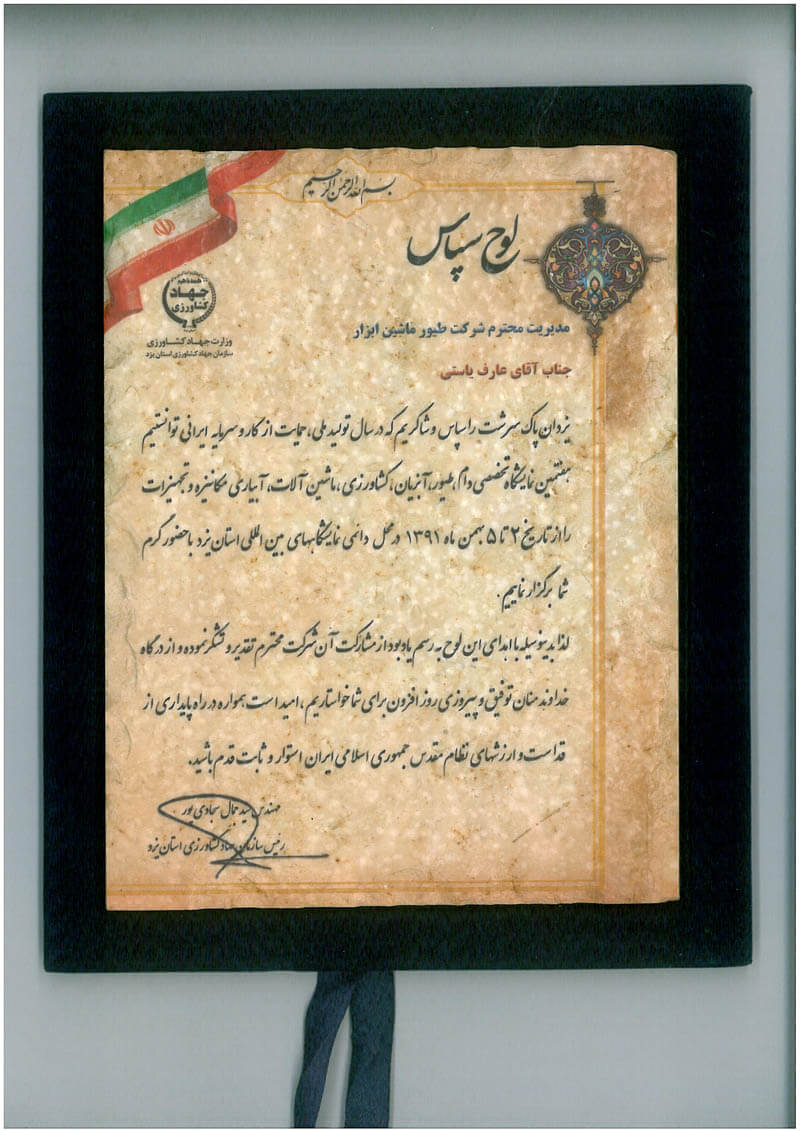 بسم الله الرحمن الرحیم
لوح سپاس
جهاد
کشاورزی
وزارت جهاد کشاورزی
سازمان جهاد کشاورزی استان یزد
مدیریت محترم شرکت طیور ماشین ابزار
جناب آقای عارف یاستی
یزدان پاک سرشت را سپاس و شاکریم که در سال تولید ملی، حمایت از کار و سرمایه ایرانی توانستیم
هفتمین نمایشگاه تخصصی دام، طیور، آبزیان، کشاورزی، ماشین آلات، آبیاری مکانیزه و تجهیزات
را از تاریخ ۲ تا ۵ بهمن ماه ۱۳۹۱ در محل دائمی نمایشگاههای بین المللی استان یزد با حضور گرم
شما برگزار نماییم.
لذا بدینوسیله با اهدای این لوح به رسم یادبود از مشارکت آن شرکت محترم تقدیر و تشکر نموده و از درگاه
خداوند منان توفیق و پیروزی روز افزون برای شما خواستاریم، امید است همواره در راه پایداری از
قداست و ارزشهای نظام مقدس جمهوری اسلامی ایران استوار و ثابت قدم باشید.
مهندس سید جمال سجادی پور
رئیس سازمان جهاد کشاورزی استان یزد